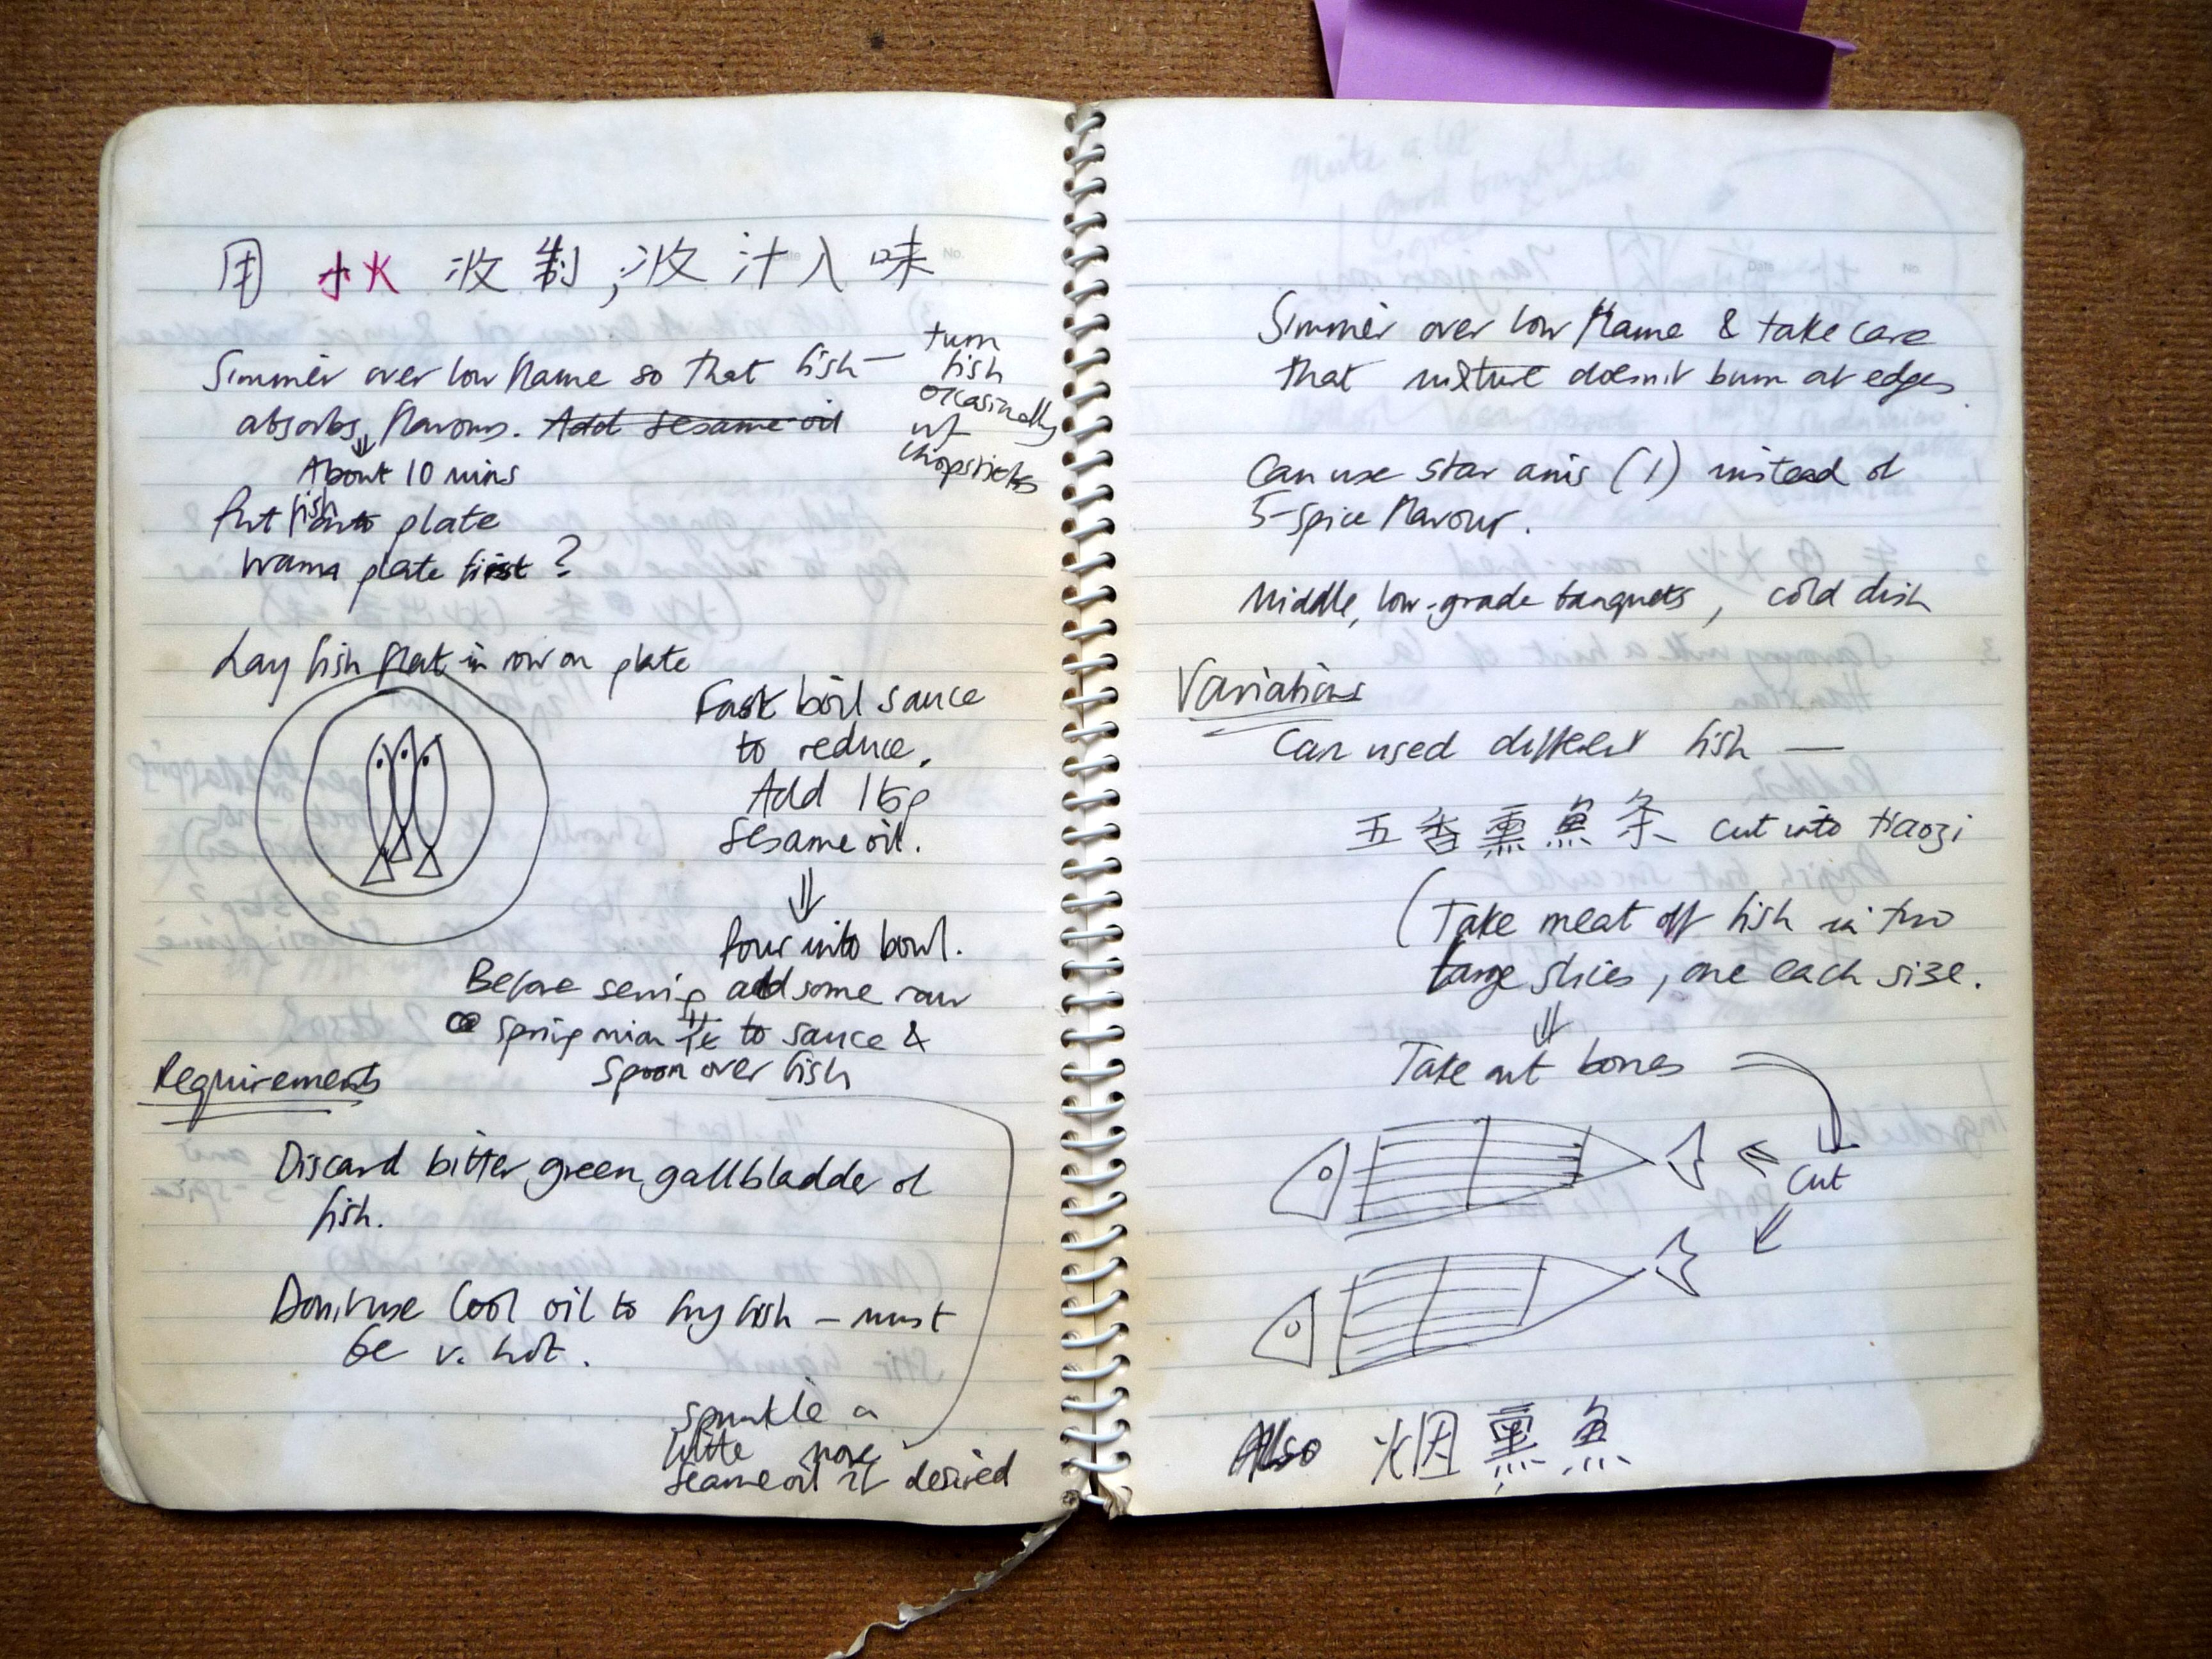 用 小火 收制,收汁入味
Simmer over low flame so that fish —
turn
fish
occasionally
w/
chopsticks
absorbs flavours. Add sesame oil
About 10 mins
Put fish onto plate
Warm plate first?
Lay fish flat in row on plate
Fast boil sauce
to reduce.
Add 1 tsp
sesame oil.
⇓
Pour into bowl.
Before serving add some raw
spring onion to sauce &
spoon over fish
Requirements
Discard bitter green gallbladder of
fish.
Don't use cool oil to fry fish – must
be v. hot.
Sprinkle a
little more
sesame oil if desired
Simmer over low flame & take care
that mixture doesn't burn at edges.
Can use star anis (1) instead of
5-spice flavour.
Middle, low-grade banquets, cold dish
Variations
Can used different fish —
五香熏魚条 cut into tiaozi
(Take meat off fish in two
large slices, one each size.
⇓
Take out bones
Cut
Also 烟熏魚